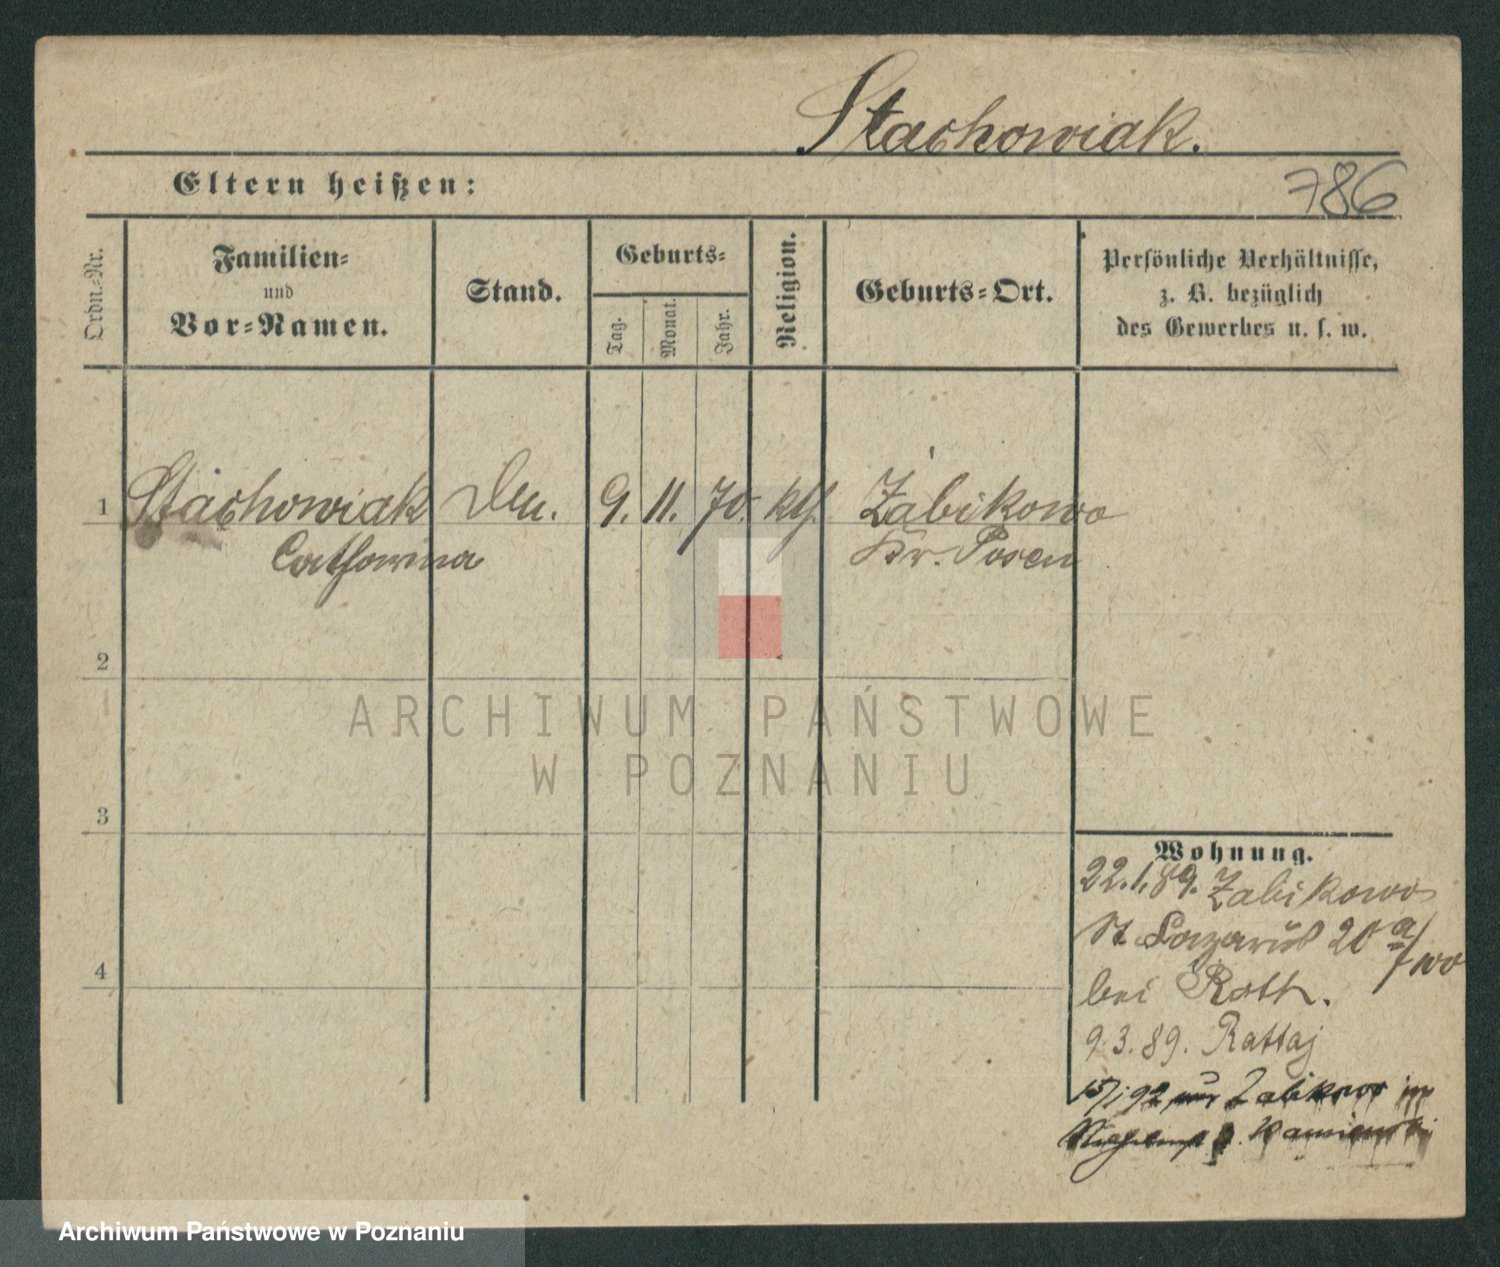 Stachowiak.
Eltern heißen:
786
Ordn.-Nr.
Familien-
und
Vor-Namen.
Stand.
Geburts-
Tag.
Monat.
Jahr.
Religion.
Geburts-Ort.
Persönliche Verhältnisse,
z. B. bezüglich
des Gewerbes u. s. w.
1
Stachowiak
9. 11. 70. kth.
Zabikowo
Catharina
Kr. Posen
2
ARCHIWUM PAŃSTWOWE
W POZNANIU
3
Wohnung.
22.1.89. Zabikowo
St Lazarus 20
bei Roth.
4
9.3.89. Rattaj
92 Zabikowo
Archiwum Państwowe w Poznaniu